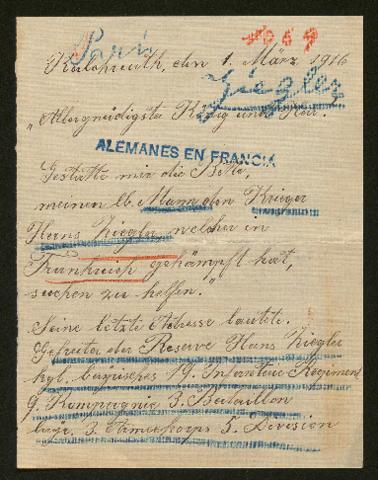 Paris 4069
Kalchreuth, den 1. März 1916
Ziegler
„Allergnädigster König und Herr.
ALEMANES EN FRANCIA
Gestatte mir die Bitte,
meinen lb. Mann den Krieger
Hans Ziegler, welcher in
Frankreich gekämpft hat,
suchen zu helfen."
Seine letzte Adresse lautete.
Gefreiter der Reserve Hans Ziegler
kgl. bayrisches 19. Infanterie Regiment
9. Kompagnie 3. Bataillon
bayr. 3. Armeekorps 5. Division